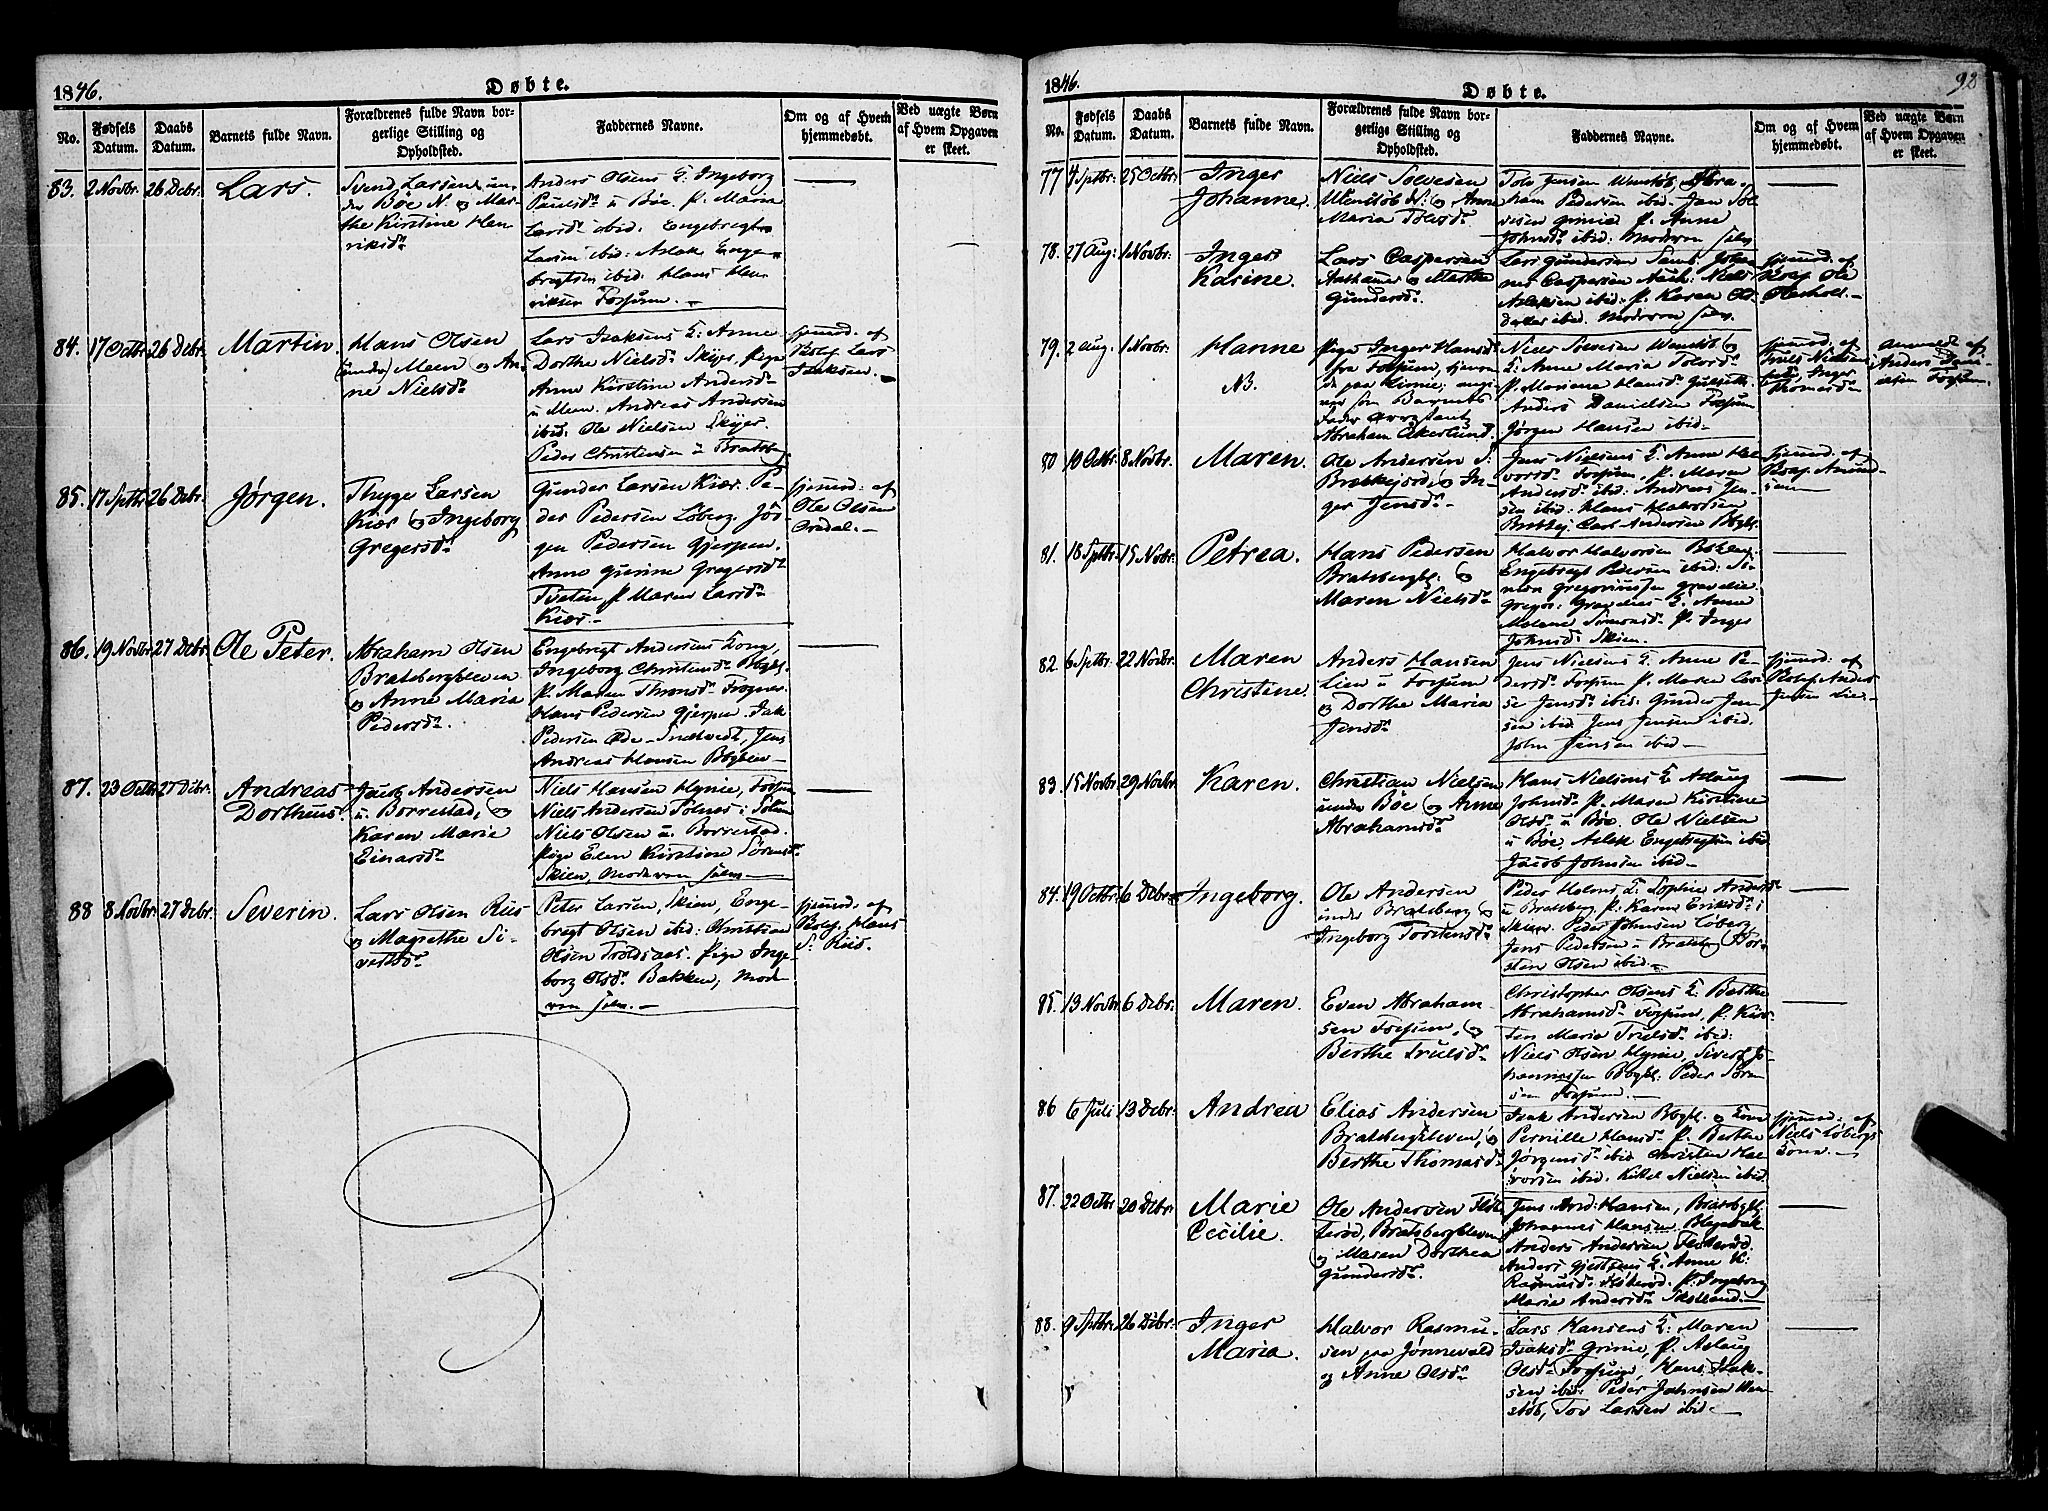 1846.
Døbte.
No.
Fødsels Datum.
Daabs Datum.
Barnets fulde Navn.
Forældrenes fulde Navn borgerlige Stilling og Opholdsted.
Faddernes Navne.
Om og af Hvem hjemmedøbt.
Ved uægte Børn af Hvem Opgaven er skeet.
83. 2 Novbr. 26 Debr: Lars.
Svend Larsen un-
der Böe N. og Mar-
the Kirstine Hen
riksd.
Anders Olsens E. Ingeborg
Paulsd. u Böe. P. Maria
Larsd. ibid. Engebregt
Larsen ibid: Aslak Enge-
bregtsen ibid: Hans Hen
riksen Fossum. —
84. 17 Octbr. 26 Debr. Martin.
Hans Olsen
(under) Meen og An-
ne Nielsd.
Lars Isaksens E. Anne
Dorthe Nielsd. Skyer, Pige
Anne Kirstine Andersd.
u Meen. Andreas Andersen
ibid. Ole Nielsen Skyer.
Peder Christensen u Bratsberg
hjemd. af
Lars
Isaksen.
85. 17 Septbr. 26 Debr. Jørgen.
Thyge Larsen
Kiær og Ingeborg
Gregersd.
Gunder Larsen Kiær. Pe-
der Pedersen Löberg. Jör-
gen Pedersen Gjerpen.
Anne Gurine Gregersd.
Tveten, P. Maren Larsd.
Kiær. —
hjemd: af
Ole Olsen
86. 19 Novbr. 27 Debr. Ole Peter.
Abraham Olsen
Bratsbergkleven
og Anne Maria
Pedersd.
Engebregt Andersens Kone,
Ingeborg Christensd. Bbgkl.
P. Maren Thomsd. Frogner.
Hans Pedersen Gjerpen. Isak
Pedersen Ode-Snelvedt, Jens
Andreas Hansen Bbgklev —
87. 23 Octbr. 27 Debr. Andreas
Dortheus.
Jacob Andersen
u. Borrestad, og
Karen Marie
Einarsd.
Niels Hansen Hynie, Fossum
Niels Andersen Folnes i Solum
Niels Olsen u. Borrestad.
Pige Elen Kirstine Sörensd.
Skien, Moderen selv —
88 8 Novbr. 27 Debr. Severin.
Lars Olsen Riis
og Magrethe Si-
vertsd.
Peter Larsen, Skien, Enge-
bregt Olsen ibid: Christian
Olsen Troldsaas. Pige Inge-
borg Olsd. Bakken, Mode
ren selv. —
hjemd. af
Hans
S. Riis.
1846.
Døbte.
92
No.
Fødsels Datum.
Daabs Datum.
Barnets fulde Navn.
Forældrenes fulde Navn borgerlige Stilling og Opholdsted.
Faddernes Navne.
Om og af Hvem hjemmedøbt.
Ved uægte Børn af Hvem Opgaven er skeet.
77 4 Septbr. 25 Octbr. Inger
Johanne.
Niels Solvesen
Wenstöb N: og Anne
Maria Tolvsd.
Tolv Jensen Wenstöb, Abra-
ham Pedersen ibid. Jan Sol
vesen Grinie P. Anne
Johnsd. ibid: Moderen selv
78. 27 Aug: 1 Novbr. Inger
Karine.
Lars Caspersen
og Marthe
Gundersd.
Lars Gundersen
nes Caspersen Niels
Aslaksen ibid. P. Karen Ols
datter ibid. Moderen selv.
hjemd. af
Ole
79. 2 Aug. 1 Novbr: Hanne
NB.
Pige Inger Hansd.
fra Fossum,
de paa Grinie; angi
ver som Barnets
Fader Arrestant
Abraham Åkerlund.
Niels Solvesen Wenstöb og
E: Anne Maria Tolvsd.
P. Mariane Hansd. Gulseth.
Anders Danielsen Fossum
Jörgen Hansen ibid —
hjemd: af
Truls Nielsen
Inger
Thomasd.
anmeldt af
Anders Dani-
elsen Fossum.
80 10 Octbr. 8 Novbr. Maren.
Ole Andersen S:
Brækkejord, og In-
ger Jensd. —
Jens Nielsens E. Anne Hal
vorsd. Fossum, P. Maren
Andersd. ibid: Andreas Jen-
sen ibid: Hans Halvorsen
Carl Andersen Bbgkl.
hjemd: af
Amund-
sen —
81. 18 Septbr. 15 Novbr. Petrea.
Hans Pedersen
Bratsbergkl: og
Maren Nielsd.
Halvor Halvorsen Bbklev
Engebregt Pedersen ibid: Si-
mon Gregoriussen
E. Anne
Malene Simonsd. P. Inger
Johnsd. Skien.
82. 6 Septbr. 22 Novbr. Maren
Christine.
Anders Hansen
Lien u Fossum
og Dorthe Maria
Jensd.
Jens Nielsens E. Anne Pe-
dersd. Fossum P. Maren Loui
se Jensd. ibid: Gunder Jen
sen ibid Jens Jensen ibid.
John Jensen ibid —
hjemd: af
Anders
Jensen Lie
83. 15 Novbr. 29 Novbr. Karen.
Christian Nielsen
under Böe og Anne
Abrahamsd.
Hans Nielsens E Aslaug
Johnsd. P. Maren Kirstine
Olsd. u Böe. Ole Nielsen
u Böe, Aslak Engebregtsen ibid
Jacob Johnsen ibid —
84. 19 Octbr. 6 Debr. Ingeborg.
Ole Andersen
under Bratsberg og
Ingeborg Torstensd.
Peder Holms E. Sophie Andersd.
u Bratsberg P. Karen Eriksd. i
Skien. Peder Johnsen Löberg
Jens Pedersen u Bratsberg Tor-
sten Olsen ibid —
85. 13 Novbr. 6 Debr. Maren.
Even Abraham-
sen Fossum, og
Berthe Trulsd.
Christopher Olsens E. Berthe
Abrahamsd. Fossum, P. Kirs-
ten Maria Trulsd. ibid:
Niels Olsen Hynie, Sivert Jo-
hannessen Bbgkl. Peder Sören
sen Fossum. —
86 6 Juli 13 Debr. Andrea
Elias Andersen
Bratsbergkleven, og
Berthe Thomasd.
Isak Andersen Bbgkl. og Kone
Pernille Hansd. P. Berthe
Jörgensd. ibid Christen Hal
vorsen ibid. Kittel Nielsen ibid
hjemd: af
Niels Löbergs
Kone. —
87. 22 Octbr. 20 Debr. Marie
Cecilie.
Ole Andersen Flöt
terød, Bratsbergkleven
og Maren Dorthea
Gundersd.
Jens And: Hansen, Bratsbgkl.
Johannes Hansen
Anders Andersen Flötterød.
Anders E. Anne K:
Rasmusd. Flötterød. P: Ingeborg
Maria Andersd.
88. 9 Septbr. 26 Debr. Inger
Maria.
Halvor Rasmu-
sen paa Jönnevald
og Anne Olsd.
Lars Hansens E: Maren
Isaksd. Grinie, P. Aslaug
Olsd. Fossum, Hans Isak-
sen ibid. Peder Johnsen Wen
stöb, Tov Larsen ibid. —